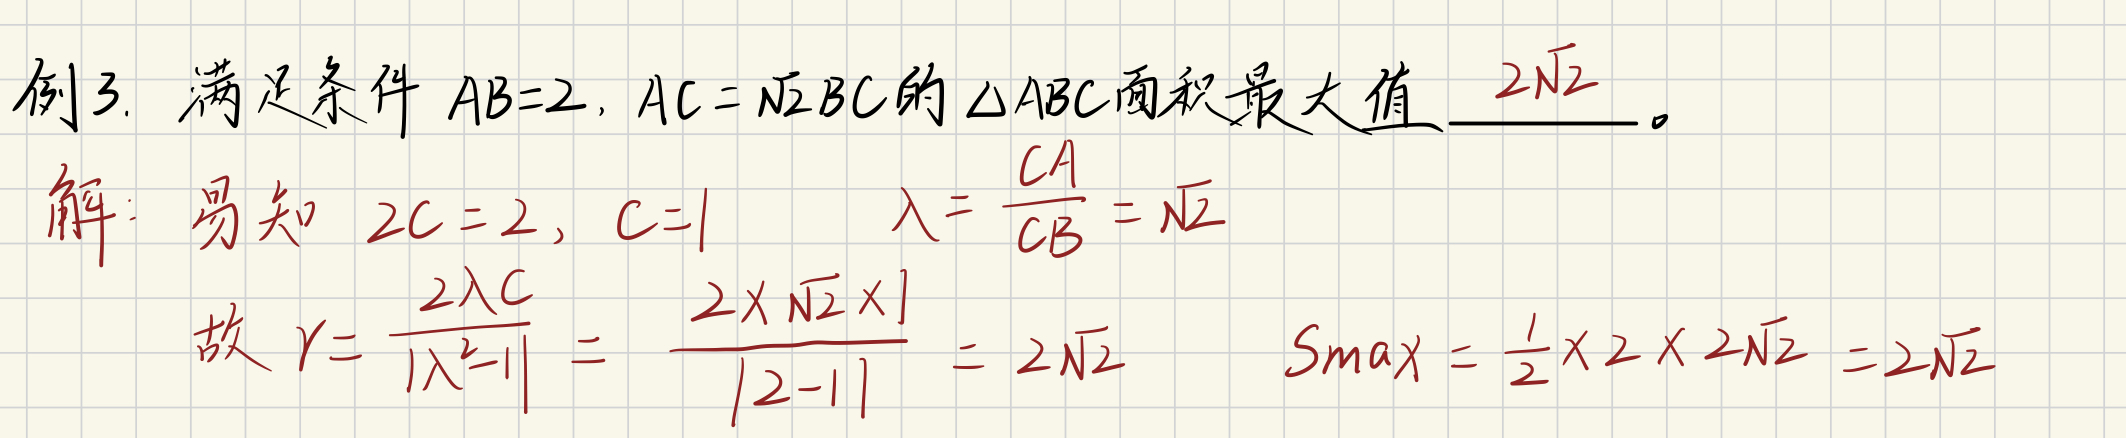 例3. 满足条件 AB=2, AC=√2BC的△ABC面积最大值 2√2 。
解: 易知 2C=2, C=1 λ=CA/CB=√2
故 r=2λC/|λ²-1|=2×√2×1/|2-1|=2√2 Smax=1/2×2×2√2=2√2